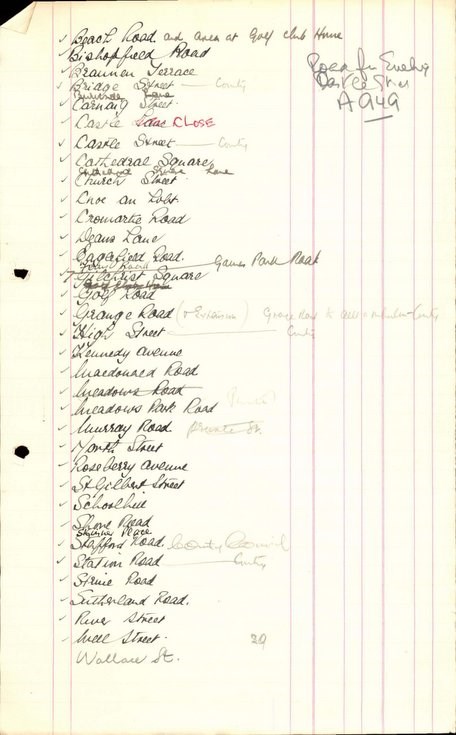 Beach Road and area at Golf Club House
Bishopfield Road
Brannen Terrace
Bridge Street - County
Lane
Carnaig Street.
A949
Castle CLOSE
Castle Street - County
Cathedral Square
Square Lane
Church Street.
Cnoc an Lobt
Cromartie Road
Deans Lane
Eaglefield Road.
Games Park Road
Gilchrist Square
Golf Road
Grange Road (+ Extension)
High Street - County
Kennedy Avenue
Macdonald Road
Meadows Road
Meadows Park Road
Murray Road Private
North Street
Roseberry Avenue
St Gilbert Street
Schoolhill
Shore Road
Place
Stafford Road. County Council
Station Road - County
Strine Road
Sutherland Road.
River Street
Well Street. 29
Wallace St.